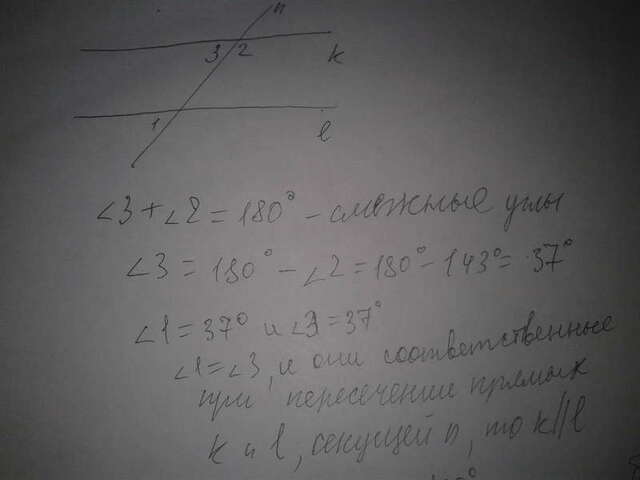 n
3 2
k
1
l
∠3+∠2=180° – смежные углы
∠3=180°-∠2=180°-143°=37°
∠1=37° и ∠3=37°
∠1=∠3, и они соответственные
при пересечении прямых
k и l, секущей n, то k||l